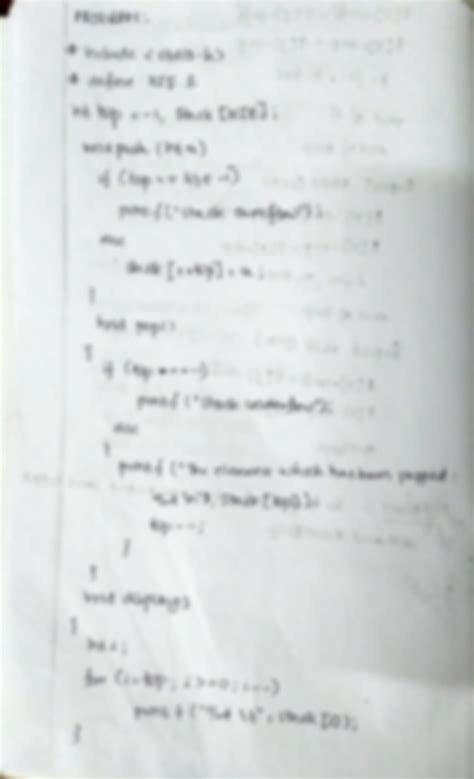 PROGRAM:
# include <stdio.h>
# define SIZE 5
int top = -1, stack [SIZE];
void push (int a)
if (top == SIZE -1)
printf ("stack overflow");
else
stack [++top] = a;
}
void pop()
{
if (top == -1)
printf ("stack underflow");
else
{
printf ("The element which has been popped
stack [top]);
top --;
}
}
void display()
{
int i;
for (i=top; i>=0; i--)
printf ("
}